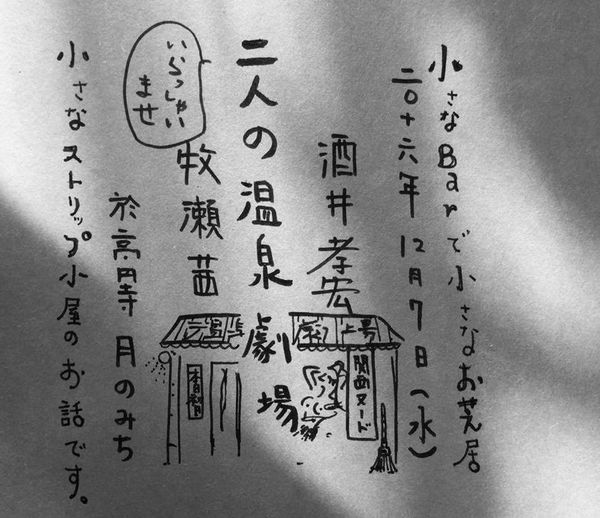 小さなBarで小さなお芝居
二〇十六年 12月7日(水)
酒井孝宏
関西ヌード
二人の温泉劇場
牧瀬茜
いらっしゃい
ませ
於高円寺 月のみち
小さなストリップ小屋のお話です。